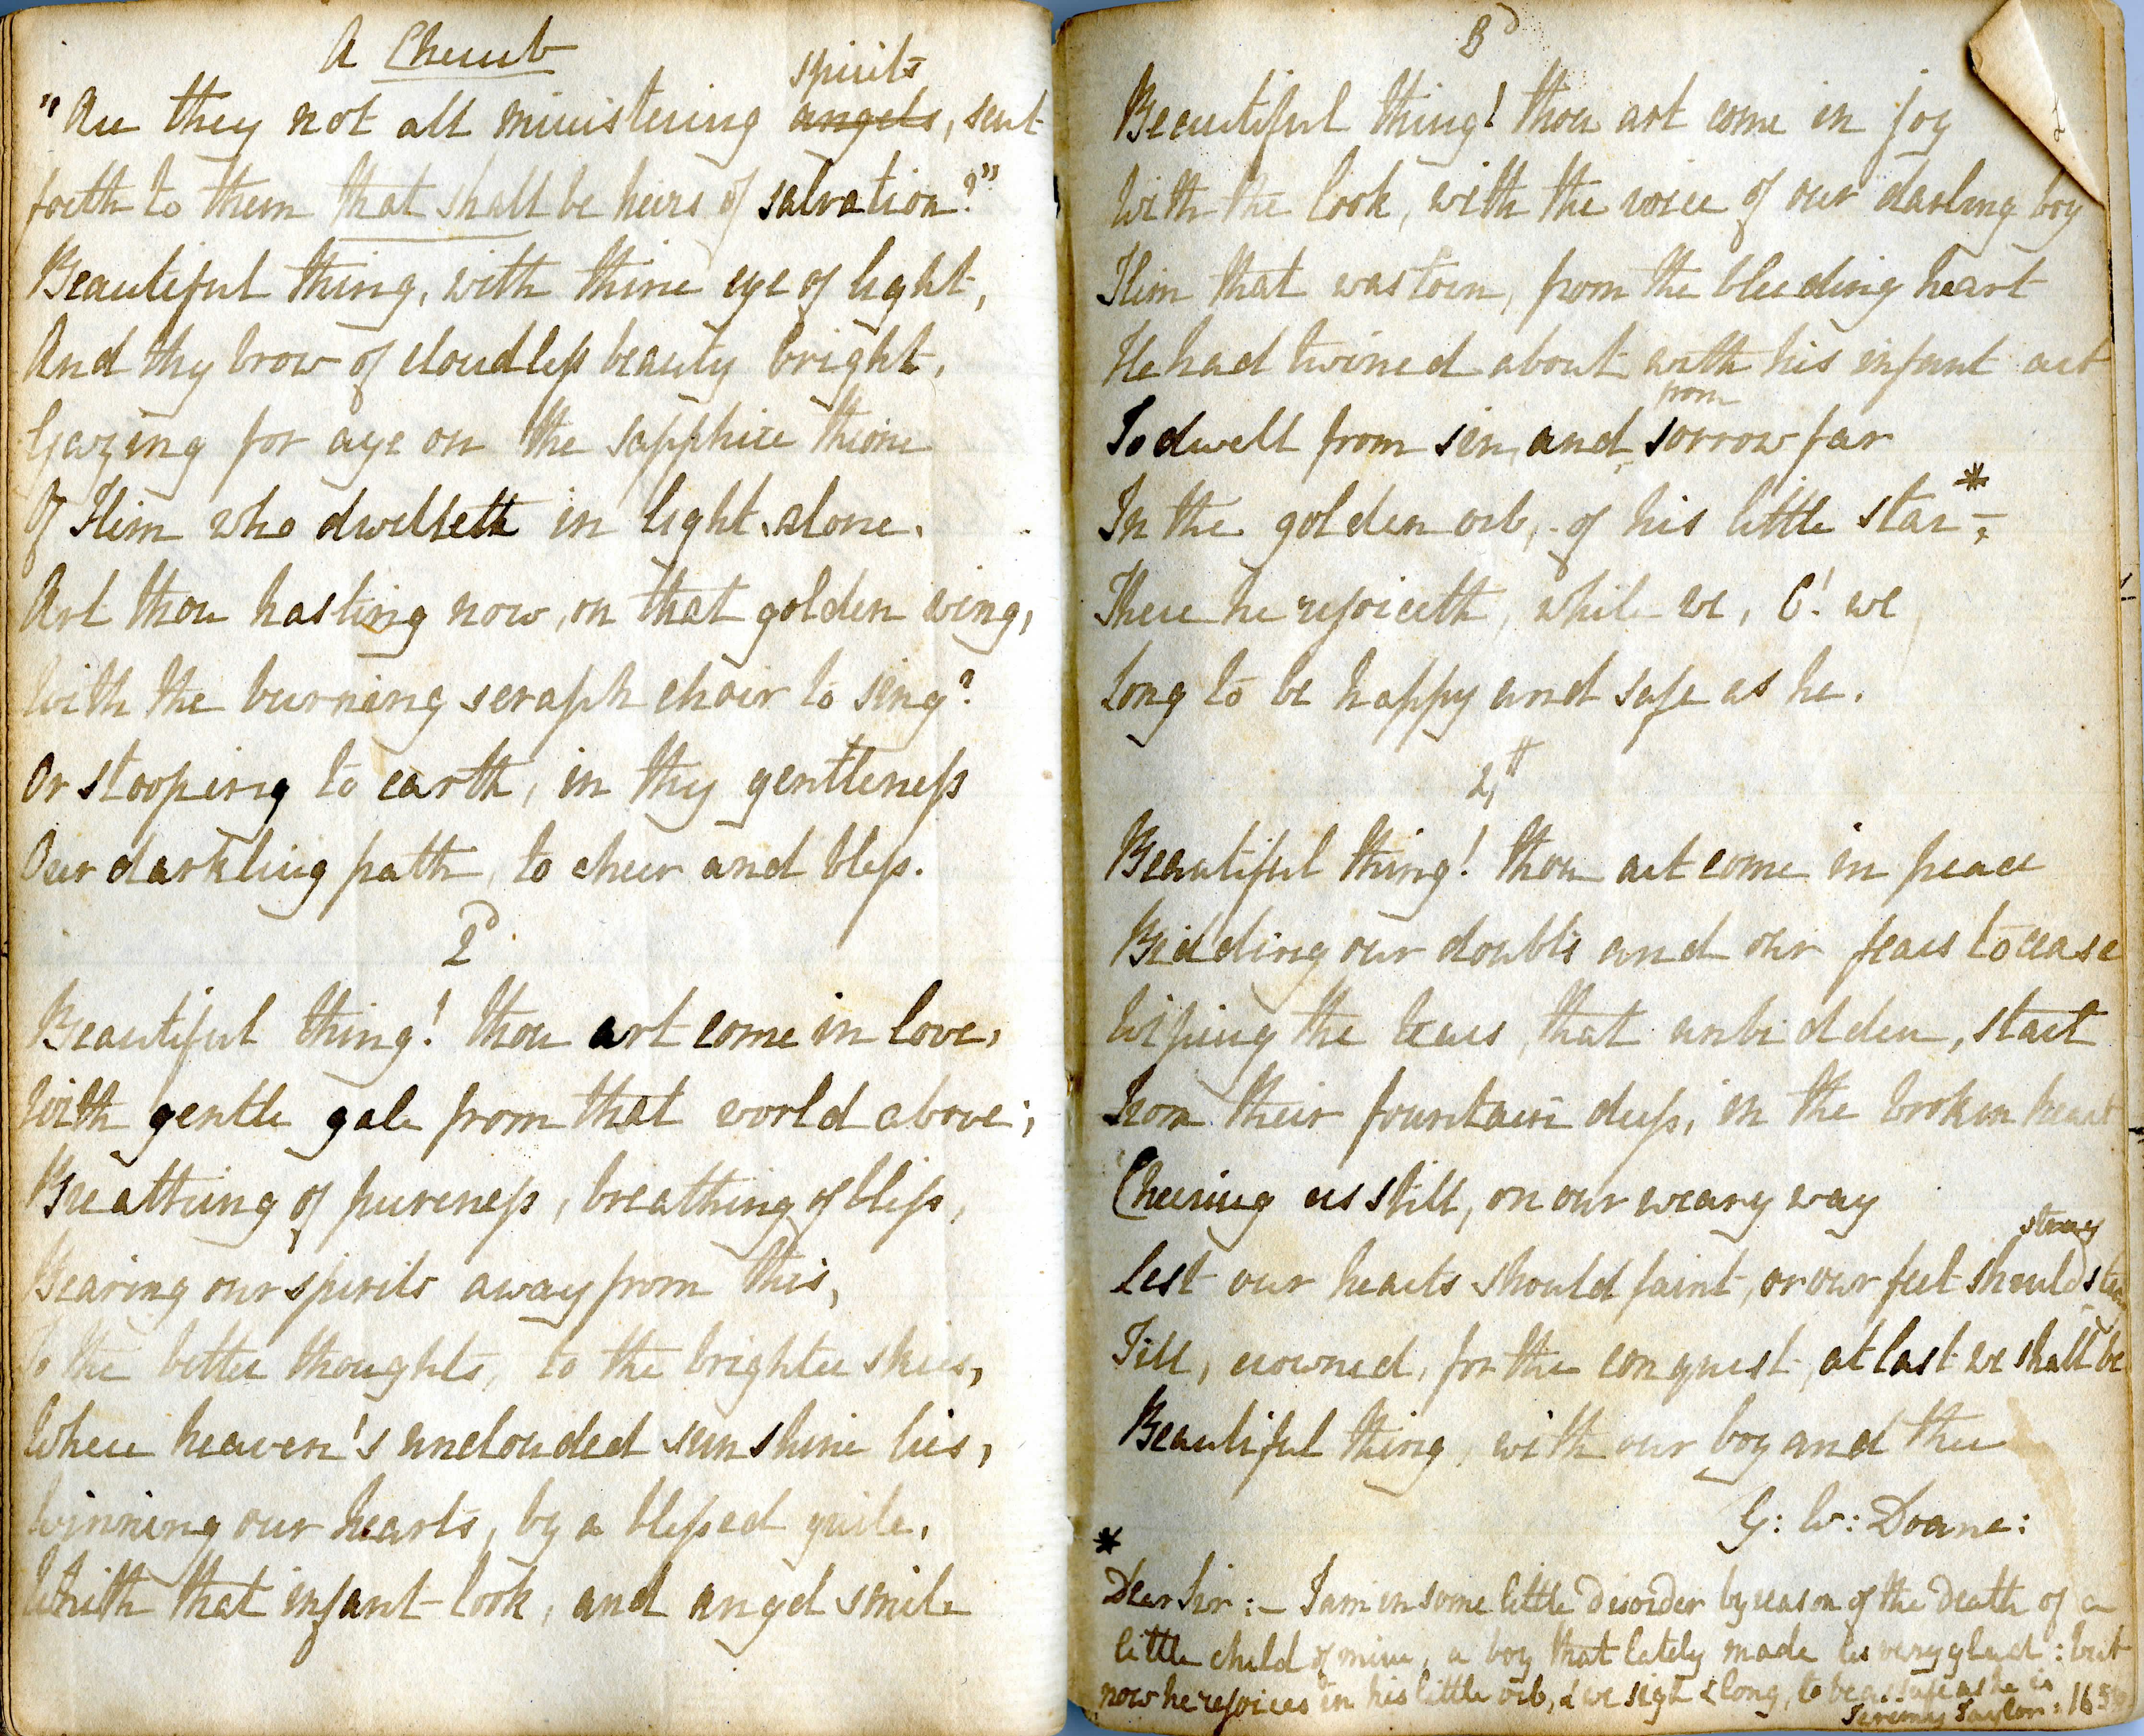 A Cherub
"Are they not all ministering angels, sent
spirits
forth to them that shall be heirs of salvation?"
Beautiful thing, with thine eye of light,
And thy brow of cloudless beauty bright,
Gazing for aye on the sapphire throne
Of Him who dwelleth in light alone.
Art thou hasting now, on that golden wing,
With the burning seraph choir to sing?
Or stooping to earth, in thy gentleness
Our darkling path, to cheer and bless.
2d
Beautiful thing! thou art come in love,
With gentle gale from that world above;
Breathing of pureness, breathing of bliss,
Bearing our spirits away from this,
To the better thoughts, to the brighter skies,
Where heaven's unclouded sunshine lies,
Winning our hearts, by a blessed guile,
With that infant look, and angel smile
3d
Beautiful thing! thou art come in joy
With the look, with the voice of our darling boy
Him that was torn, from the bleeding heart
He had twined about with his infant art
from
To dwell from sin, and sorrow far
In the golden orb, of his little star*;
There he rejoiceth, while we, O! we
Long to be happy and safe as he.
Beautiful thing! thou art come in peace
Bidding our doubts and our fears to cease
Wiping the tears, that unbidden, start
From their fountain deep, in the broken heart
Cheering us still, on our weary way
stray
Lest our hearts should faint, or our feet should
Till, crowned, for the conquest, at last we shall be
Beautiful thing, with our boy and thee
G: W: Doane:
* Dear Sir:- I am in some little disorder by reason of the death of a
little child of mine, a boy that lately made us very glad: but
now he rejoices in his little orb, & we sigh & long, to be as safe as he is
Jeremy Taylor: 1656